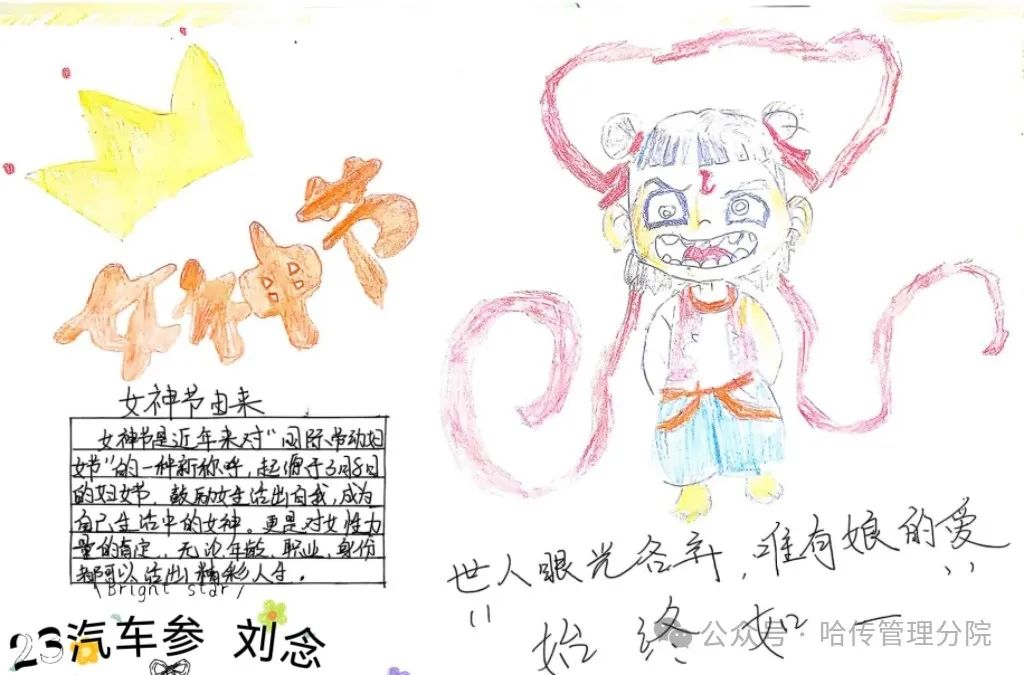 女神节
女神节由来
女神节是近年来对“国际劳动妇
女节”的一种新称呼，起源于3月8日
的妇女节，鼓励女生活出自我，成为
自己生活中的女神。更是对女性力
量的肯定，无论年龄、职业、身份
都可以活出精彩人生。
\Bright star/
23汽车参 刘念
世人眼光各异，唯有娘的爱
始终如一
公众号·哈传管理分院